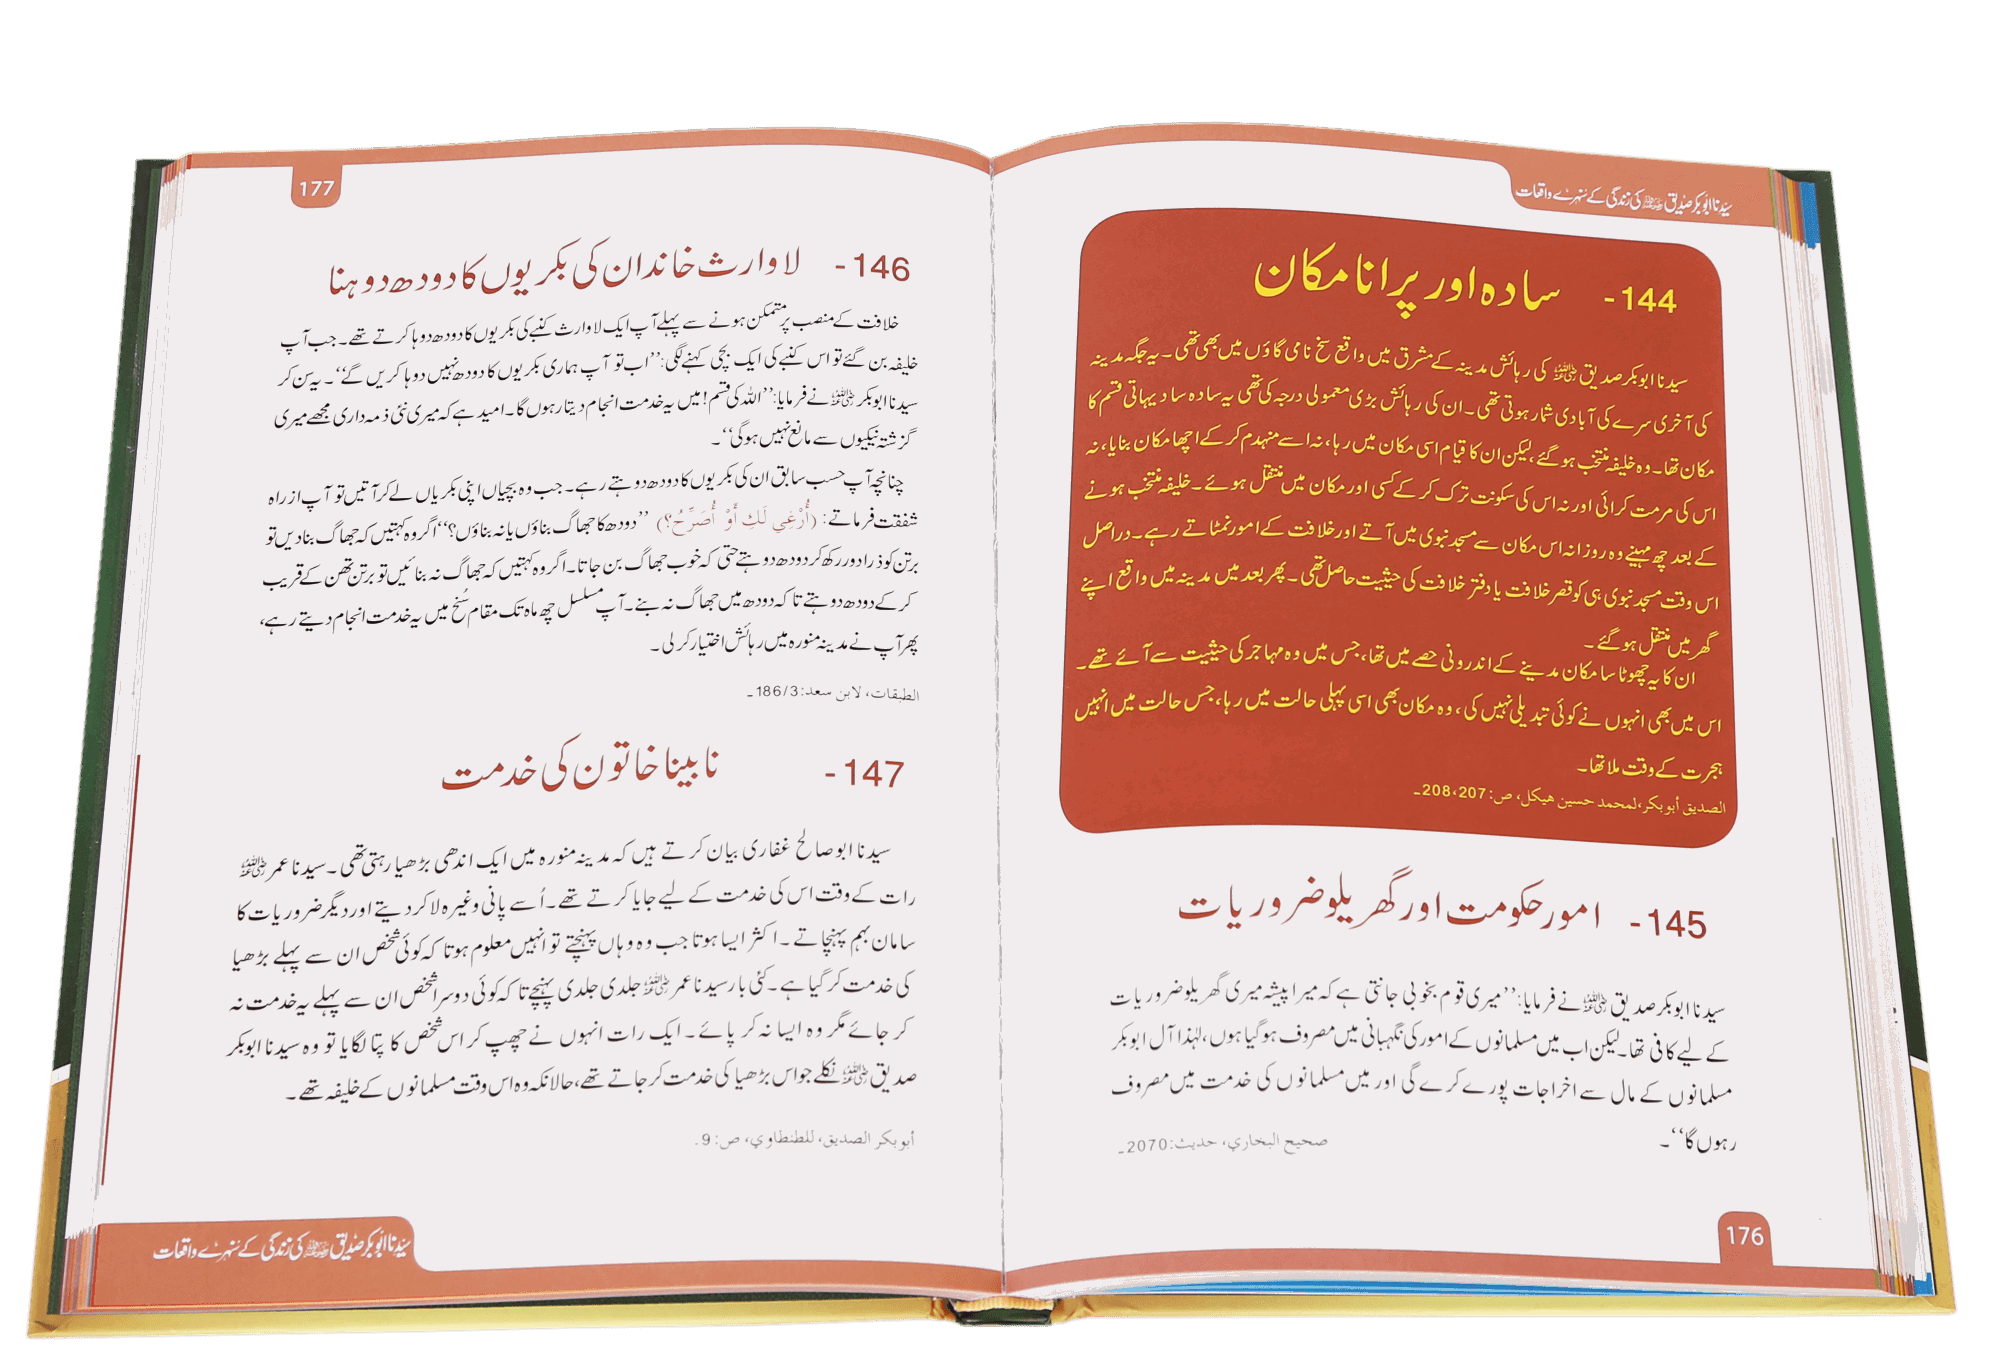 سیدنا ابوبکر صدیق رضی اللہ عنہ کی زندگی کے سنہرے واقعات
144- سادہ اور پرانا مکان
سیدنا ابوبکر صدیق رضی اللہ عنہ کی رہائش مدینہ کے مشرق میں واقع سخ نامی گاؤں میں بھی تھی۔ یہ جگہ مدینہ
کی آخری سرے کی آبادی شمار ہوتی تھی۔ ان کی رہائش بڑی معمولی درجہ کی تھی یہ سادہ سا دیہاتی قسم کا
مکان تھا۔ وہ خلیفہ منتخب ہو گئے، لیکن ان کا قیام اسی مکان میں رہا، نہ اسے منہدم کر کے اچھا مکان بنایا، نہ
اس کی مرمت کرائی اور نہ اس کی سکونت ترک کر کے کسی اور مکان میں منتقل ہوئے۔ خلیفہ منتخب ہونے
کے بعد چھ مہینے وہ روزانہ اس مکان سے مسجد نبوی میں آتے اور خلافت کے امور نمٹاتے رہے۔ دراصل
اس وقت مسجد نبوی ہی کو قصر خلافت یا دفتر خلافت کی حیثیت حاصل تھی۔ پھر بعد میں مدینہ میں واقع اپنے
گھر میں منتقل ہو گئے۔
ان کا یہ چھوٹا سا مکان مدینے کے اندرونی حصے میں تھا، جس میں وہ مہاجر کی حیثیت سے آئے تھے۔
اس میں بھی انہوں نے کوئی تبدیلی نہیں کی، وہ مکان بھی اسی پہلی حالت میں رہا، جس حالت میں انہیں
ہجرت کے وقت ملا تھا۔
الصديق أبوبكر، لمحمد حسين هيكل، ص: 207، 208۔
145- امور حکومت اور گھریلو ضروریات
سیدنا ابوبکر صدیق رضی اللہ عنہ نے فرمایا: ’’میری قوم بخوبی جانتی ہے کہ میرا پیشہ میری گھریلو ضروریات
کے لیے کافی تھا۔ لیکن اب میں مسلمانوں کے امور کی نگہبانی میں مصروف ہو گیا ہوں، لہٰذا آل ابوبکر
مسلمانوں کے مال سے اخراجات پورے کرے گی اور میں مسلمانوں کی خدمت میں مصروف
رہوں گا‘‘۔
صحيح البخاري، حديث: 2070۔
176
177
146- لاوارث خاندان کی بکریوں کا دودھ دوہنا
خلافت کے منصب پر متمکن ہونے سے پہلے آپ ایک لاوارث کنبے کی بکریوں کا دودھ دوہا کرتے تھے۔ جب آپ
خلیفہ بن گئے تو اس کنبے کی ایک بچی کہنے لگی: ’’اب تو آپ ہماری بکریوں کا دودھ نہیں دوہا کریں گے‘‘۔ یہ سن کر
سیدنا ابوبکر رضی اللہ عنہ نے فرمایا: ’’اللہ کی قسم! میں یہ خدمت انجام دیتا رہوں گا۔ امید ہے کہ میری نئی ذمہ داری مجھے میری
گزشتہ نیکیوں سے مانع نہیں ہوگی‘‘۔
چنانچہ آپ حسب سابق ان کی بکریوں کا دودھ دوہتے رہے۔ جب وہ بچیاں اپنی بکریاں لے کر آتیں تو آپ از راہ
شفقت فرماتے: (أُرْغِي لَكِ أَوْ أُصَرِّحُ؟) ’’دودھ کا جھاگ بناؤں یا نہ بناؤں؟‘‘ اگر وہ کہتیں کہ جھاگ بنا دیں تو
برتن کو ذرا دور رکھ کر دودھ دوہتے حتی کہ خوب جھاگ بن جاتا۔ اگر وہ کہتیں کہ جھاگ نہ بنائیں تو برتن تھن کے قریب
کر کے دودھ دوہتے تاکہ دودھ میں جھاگ نہ بنے۔ آپ مسلسل چھ ماہ تک مقام سُخ میں یہ خدمت انجام دیتے رہے،
پھر آپ نے مدینہ منورہ میں رہائش اختیار کر لی۔
الطبقات، لابن سعد: 186/3۔
147- نابینا خاتون کی خدمت
سیدنا ابو صالح غفاری بیان کرتے ہیں کہ مدینہ منورہ میں ایک اندھی بڑھیا رہتی تھی۔ سیدنا عمر رضی اللہ عنہ
رات کے وقت اس کی خدمت کے لیے جایا کرتے تھے۔ اُسے پانی وغیرہ لا کر دیتے اور دیگر ضروریات کا
سامان بہم پہنچاتے۔ اکثر ایسا ہوتا جب وہ وہاں پہنچتے تو انہیں معلوم ہوتا کہ کوئی شخص ان سے پہلے بڑھیا
کی خدمت کر گیا ہے۔ کئی بار سیدنا عمر رضی اللہ عنہ جلدی جلدی پہنچے تاکہ کوئی دوسرا شخص ان سے پہلے یہ خدمت نہ
کر جائے مگر وہ ایسا نہ کر پائے۔ ایک رات انہوں نے چھپ کر اس شخص کا پتا لگایا تو وہ سیدنا ابوبکر
صدیق رضی اللہ عنہ نکلے جو اس بڑھیا کی خدمت کر جاتے تھے، حالانکہ وہ اس وقت مسلمانوں کے خلیفہ تھے۔
أبوبكر الصديق، للطنطاوي، ص: 9.
سیدنا ابوبکر صدیق رضی اللہ عنہ کی زندگی کے سنہرے واقعات